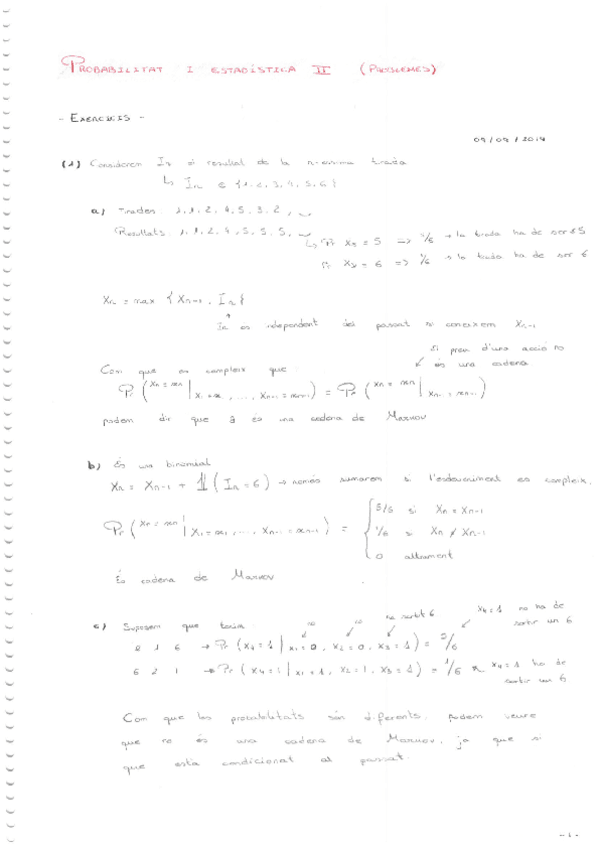 PROBABILITAT I ESTADÍSTICA II (PROBLEMES)
- EXERCICIS -
(1) Considerem In el resultat de la n-èssima tirada
↳ In ∈ {1,2,3,4,5,6}
a) Tirades: 1, 1, 2, 4, 5, 3, 2,
Resultats: 1, 1, 2, 4, 5, 5, 5,
Pr X₈ = 5 => 5/6 → la tirada ha de ser ≤5
Pr X₈ = 6 => 1/6 → la tirada ha de ser 6
Xn = max { Xn-1, In }
In es independent del passat si coneixem Xn-1
Si preu d'una acció no
és una cadena
Com que es compleix que:
Pr (Xn = xn | X1 = x1, ..., Xn-1 = xn-1) = Pr (Xn = xn | Xn-1 = xn-1)
podem dir que a és una cadena de Markov
b) És una binomial
Xn = Xn-1 + 𝟙 (In = 6) → només sumarem si l'esdeveniment es compleix.
Pr (Xn = xn | X1 = x1, ..., Xn-1 = xn-1) = { 5/6 si Xn = Xn-1
1/6 si Xn ≠ Xn-1
0 altrament
És cadena de Markov
c) Suposem que tenim:
no no ha sortit 6 X4 = 1 no ha de sortir un 6
2 1 6 → Pr (X4 = 1 | X1 = 0, X2 = 0, X3 = 1) = 5/6
6 2 1 → Pr (X4 = 1 | X1 = 1, X2 = 1, X3 = 1) = 1/6 X4 = 1 ha de sortir un 6
Com que les probabilitats són diferents, podem veure
que no és una cadena de Markov, ja que si
que està condicionat al passat.
- 1 -